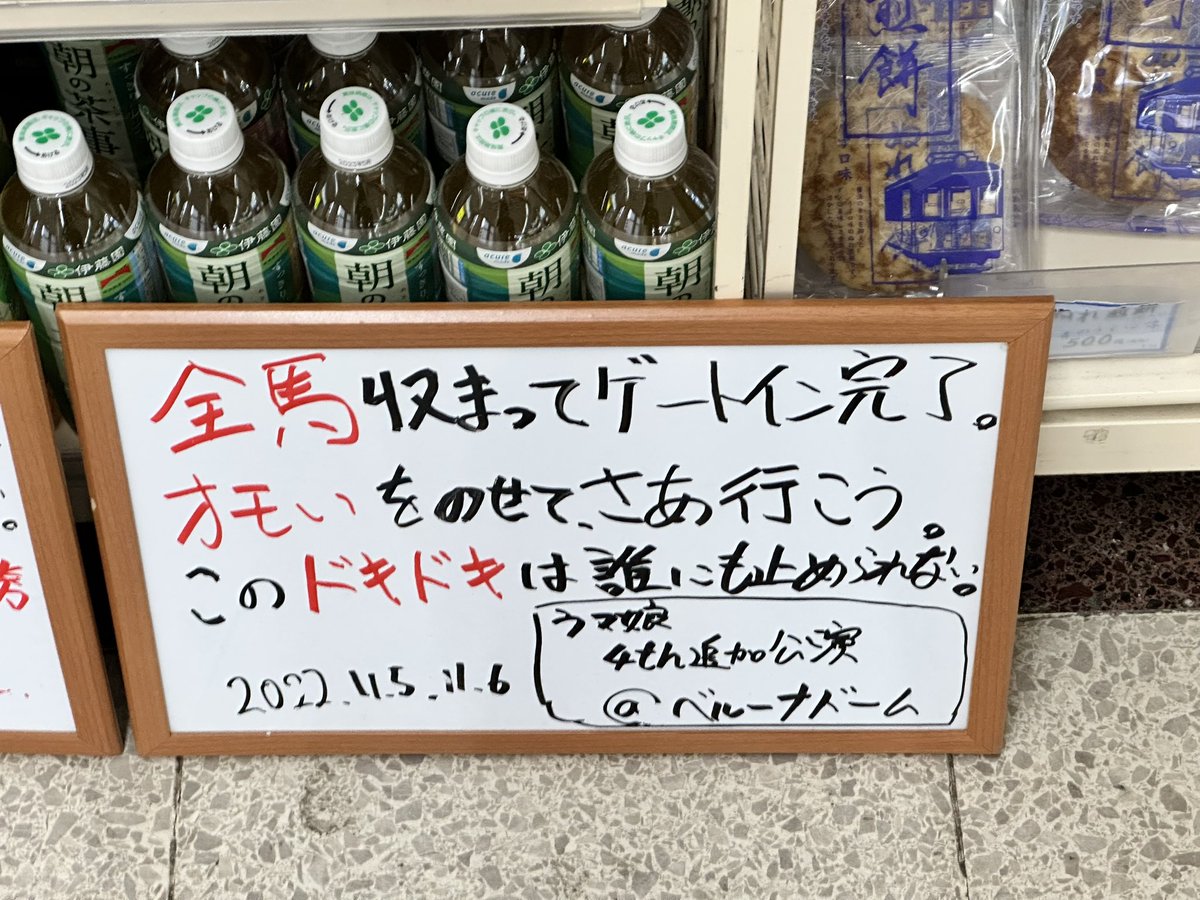 朝の茶事
acure
伊藤園
朝の
acure
伊藤園
朝の
acure
伊藤園
朝の
acure
伊藤園
朝の
acure
伊藤園
朝の
煎餅
500
全馬収まってゲートイン完了。
オモいをのせて、さあ行こう。
このドキドキは誰にも止められない。
ウマ娘
4th追加公演
@ベルーナドーム
2022.11.5.11.6